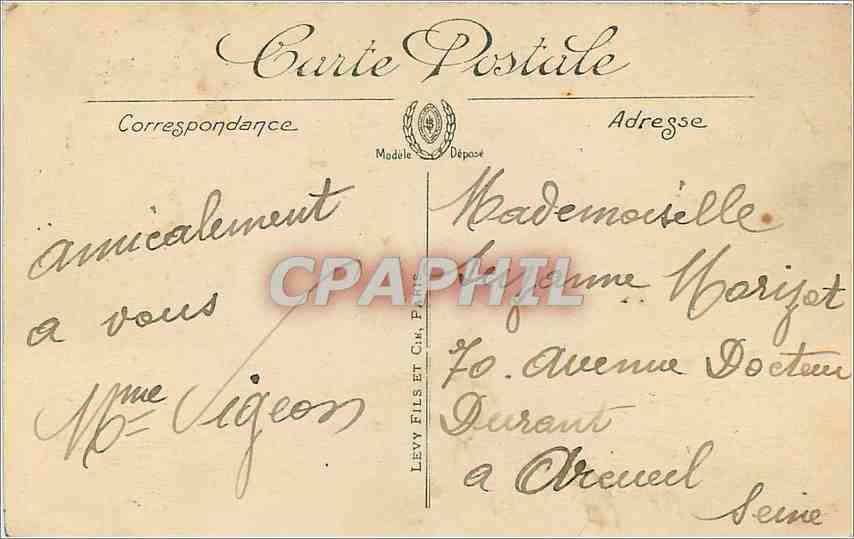 Carte Postale
Correspondance
Adresse
Modèle Déposé
amicalement
a vous
Mme Vigeon
LEVY FILS ET CIE, PARIS
Mademoiselle
Suzanne Morizot
70. avenue Docteur
Durant
a Arcueil
Seine
CPAPHIL